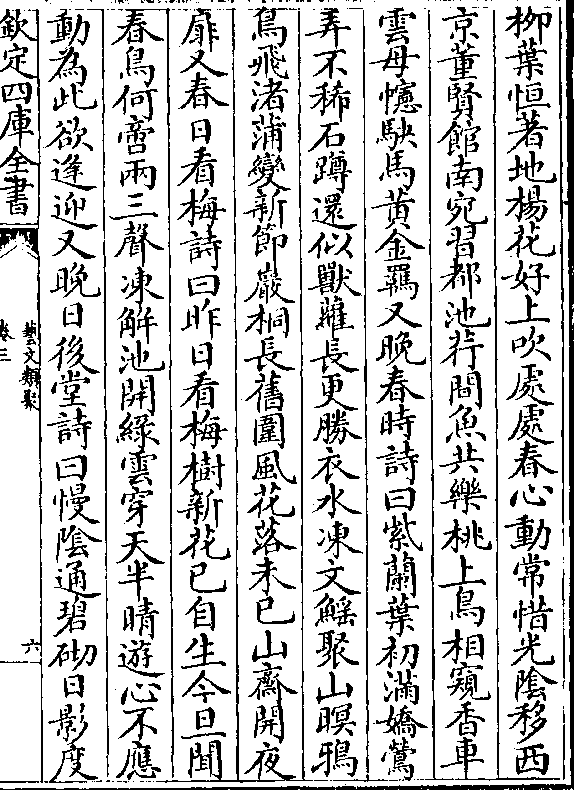 柳葉恒著地楊花好上吹處處春心動常惜光陰移西
京董賢館南宛習都池荇間魚共樂桃上鳥相窺香車
雲母幰駃馬黄金羈又晚春時詩曰紫蘭葉初滿嬌鶯
弄不稀石蹲還似獸蘿長更勝衣水凍文鰩聚山暝鴉
鳥飛渚蒲變新節巖桐長舊圍風花落未已山齋開夜
扉又春日看梅詩曰昨日看梅樹新花已自生今旦聞
春鳥何啻兩三聲凍解池開緑雲穿天半晴遊心不應
動為此欲逢迎又晚日後堂詩曰慢陰通碧砌日影度
欽定四庫全書
藝文類聚
卷三
六